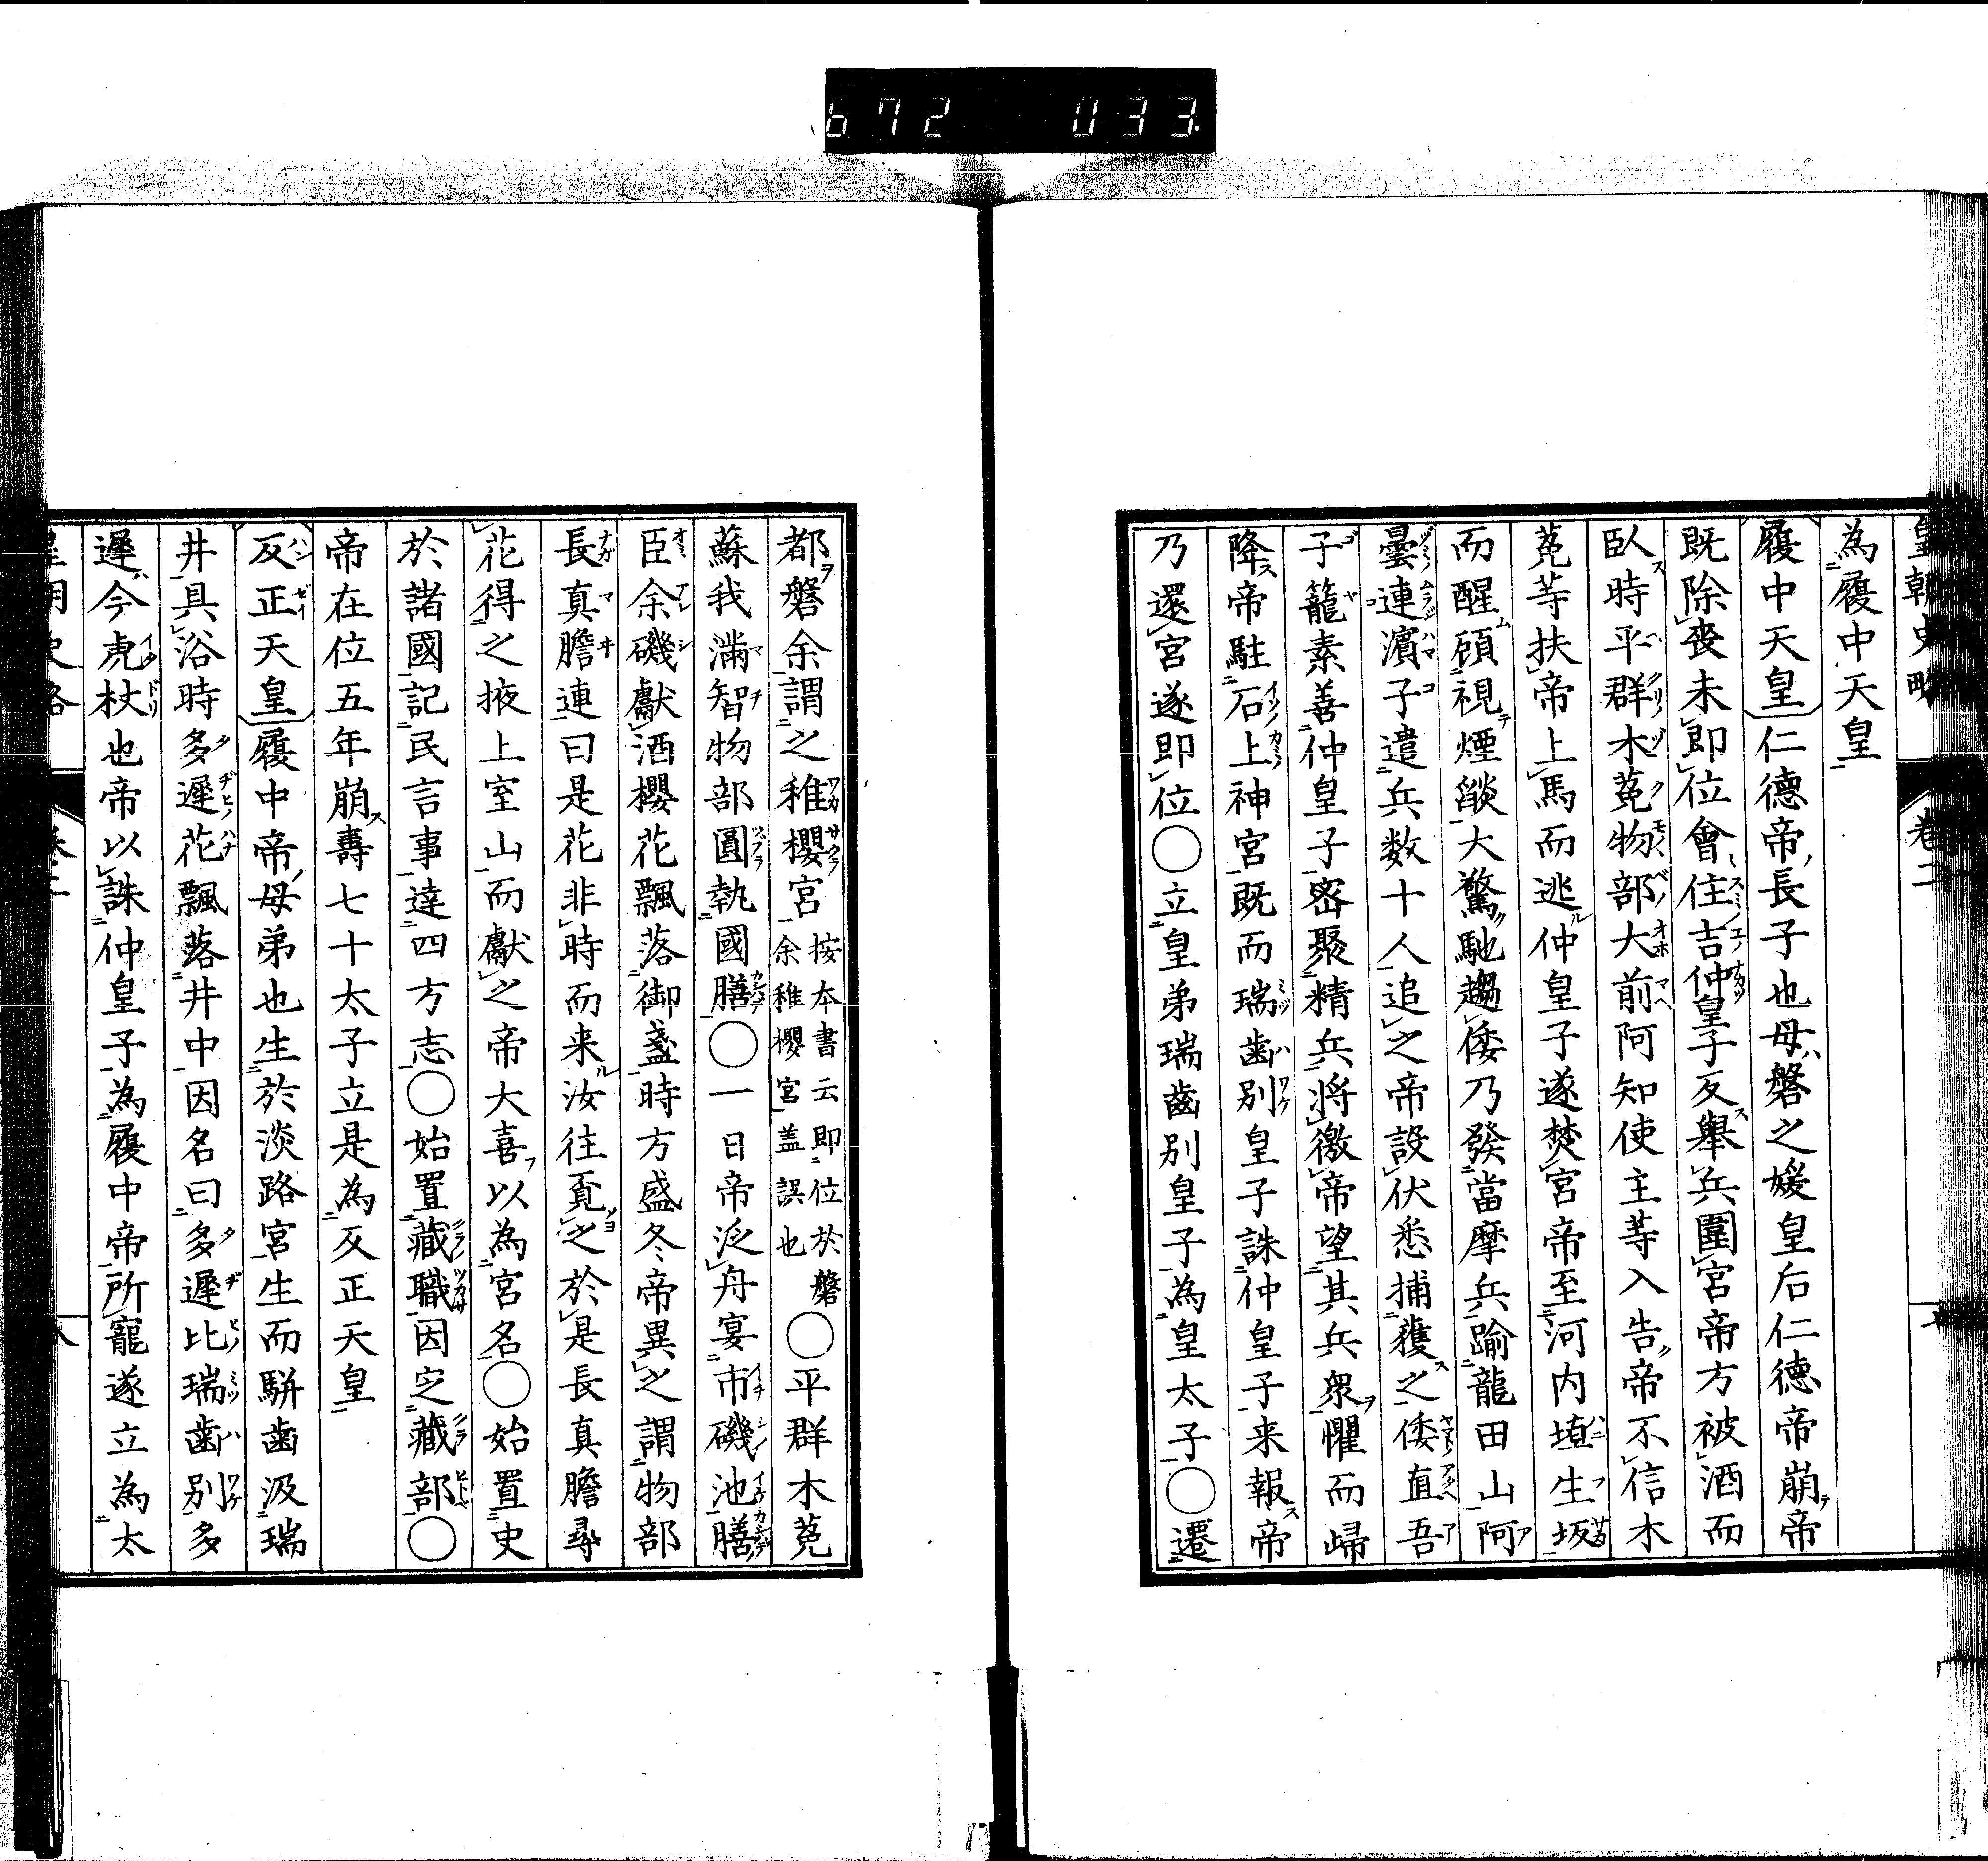 672 033
皇朝史略 卷二
為履中天皇
履中天皇仁德帝長子也母磐之媛皇后仁德帝崩帝
既除喪未即位會住吉仲皇子反舉兵圍宮帝方被酒而
臥時平群木菟物部大前阿知使主等入告帝不信木
菟等扶帝上馬而逃仲皇子遂焚宮帝至河内埴生坂
而醒顧視煙燄大驚馳趨倭乃發當摩兵踰龍田山阿
曇連濱子遣兵数十人追之帝設伏悉捕獲之倭直吾
子籠素善仲皇子密聚精兵將徼帝望其兵衆懼而歸
降帝駐石上神宮既而瑞歯別皇子誅仲皇子来報帝
乃還宮遂即位○立皇弟瑞齒別皇子為皇太子○遷
都磐余謂之稚櫻宮按本書云即位於磐余稚櫻宮盖誤也○平群木菟
蘇我滿智物部圓執國膳○一日帝泛舟宴市磯池膳
臣余磯獻酒櫻花飄落御盞時方盛冬帝異之謂物部
長真膽連曰是花非時而来汝往覔之於是長真膽尋
花得之掖上室山而獻之帝大喜以為宮名○始置史
於諸國記民言事達四方志○始置藏職因定藏部○
帝在位五年崩壽七十太子立是為反正天皇
反正天皇履中帝母弟也生於淡路宮生而駢歯汲瑞
井具浴時多遲花飄落井中因名曰多遲比瑞歯別多
遲今虎杖也帝以誅仲皇子為履中帝所寵遂立為太